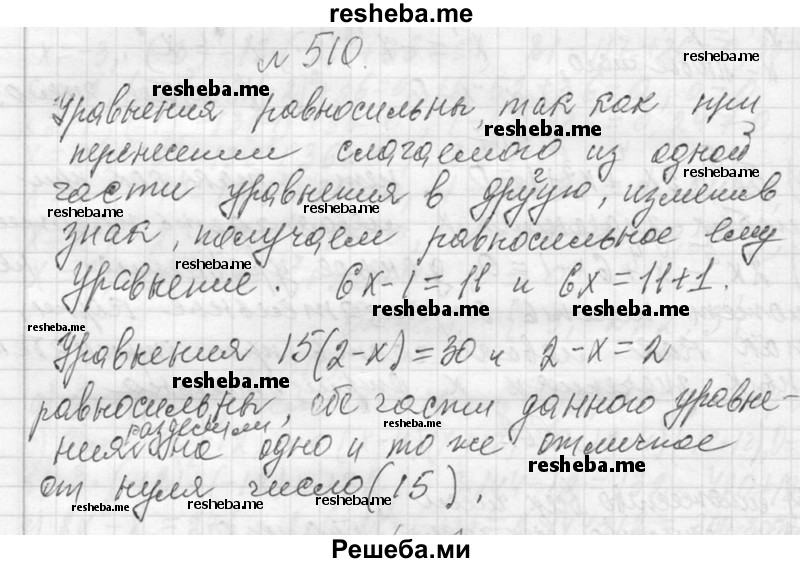 resheba.me
№ 510.
resheba.me
resheba.me
Уравнения равносильны, так как при
resheba.me
перенесении слагаемого из одной
resheba.me
части уравнения в другую, изменив
resheba.me
resheba.me
знак, получаем равносильное ему
resheba.me
уравнение. 6x-1=11 и 6x=11+1.
resheba.me
resheba.me
resheba.me
Уравнения 15(2-x)=30 и 2-x=2
resheba.me
равносильны, обе части данного уравне-
resheba.me
ния разделили на одно и то же отличное
resheba.me
от нуля число (15).
resheba.me
resheba.me
resheba.me
Решеба.ми